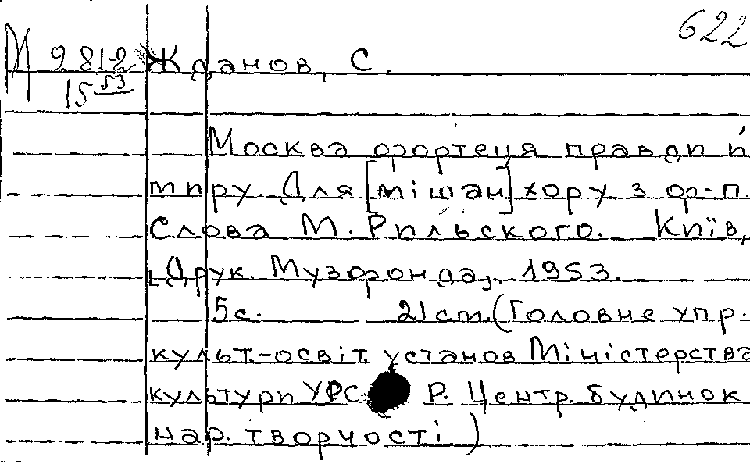 622
М 9812 Жданов, С.
15 53
Москва фортеця правди й
миру. Для [мішан] хору з ф-п.
Слова М. Рильського. Київ,
Друк. Музфонда, 1953.
5с. 21см. (Головне упр.
культ.-освіт. установ Міністерства
культури УРСР. Центр. будинок
нар. творчості)